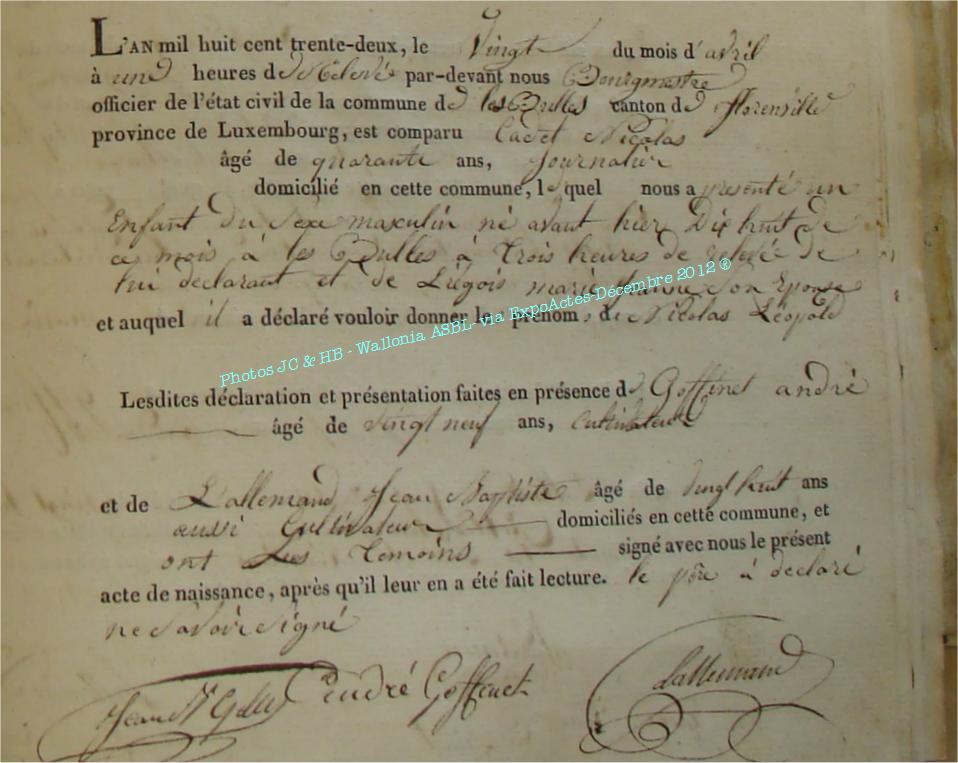 L'AN mil huit cent trente-deux, le Vingt du mois d'avril
à une heures de Relevé par-devant nous Bourgmestre
officier de l'état civil de la commune de les Bulles canton de florenville
province de Luxembourg, est comparu Cadet Nicolas
âgé de quarante ans, journalier
domicilié en cette commune, lequel nous a presenté un
Enfant du Sexe masculin né avant hier Dix huit de
ce mois à les Bulles à Trois heures de relevée de
lui declarant et de Liégois marie Son Epouse
et auquel il a déclaré vouloir donner le prénoms de Nicolas Léopold
Photos JC & HB - Wallonia ASBL- via ExpoActes-Décembre 2012 ®
Lesdites déclaration et présentation faites en présence de Goffinet andré
âgé de vingt neuf ans, cultivateur
et de Lallemand Jean Baptiste âgé de vingt huit ans
aussi Cultivateur domiciliés en cette commune, et
ont Les Temoins signé avec nous le présent
acte de naissance, après qu'il leur en a été fait lecture. le père à declaré
ne Savoir Signé
Jean André Goffinet Lallemand